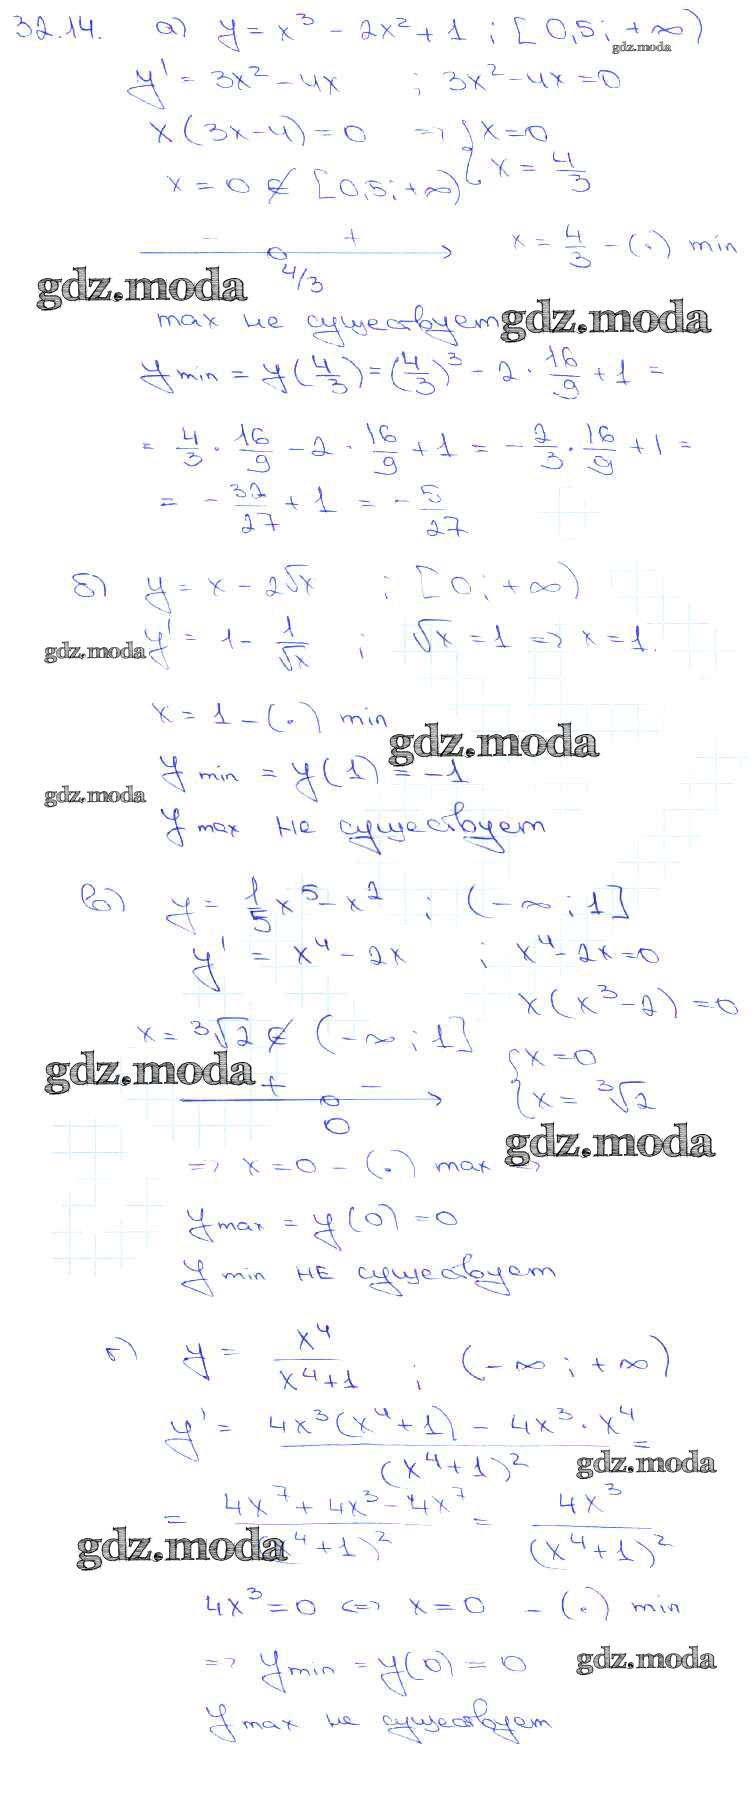 32.14. а) y = x³ - 2x² + 1 ; [0,5; +∞)
gdz.moda
y' = 3x² - 4x ; 3x² - 4x = 0
x(3x-4) = 0 => { x = 0
x = 4/3
x = 0 ∉ [0,5; +∞)
- +
4/3
x = 4/3 - (·) min
gdz.moda
max не существует
gdz.moda
y min = y(4/3) = (4/3)³ - 2 · 16/9 + 1 =
= 4/3 · 16/9 - 2 · 16/9 + 1 = - 2/3 · 16/9 + 1 =
= - 32/27 + 1 = - 5/27
б) y = x - 2√x ; [0; +∞)
gdz.moda
y' = 1 - 1/√x ; √x = 1 => x = 1.
x = 1 - (·) min
gdz.moda
y min = y(1) = -1
gdz.moda
y max не существует
в) y = 1/5 x⁵ - x² ; (-∞; 1]
y' = x⁴ - 2x ; x⁴ - 2x = 0
x(x³ - 2) = 0
x = ³√2 ∉ (-∞; 1]
{ x = 0
x = ³√2
gdz.moda
+ -
0
gdz.moda
=> x = 0 - (·) max =>
y max = y(0) = 0
y min не существует
г) y = x⁴/(x⁴+1) ; (-∞; +∞)
y' = (4x³(x⁴+1) - 4x³·x⁴)/(x⁴+1)² =
gdz.moda
= (4x⁷ + 4x³ - 4x⁷)/(x⁴+1)² = 4x³/(x⁴+1)²
gdz.moda
4x³ = 0 <=> x = 0 - (·) min
=> y min = y(0) = 0
gdz.moda
y max не существует